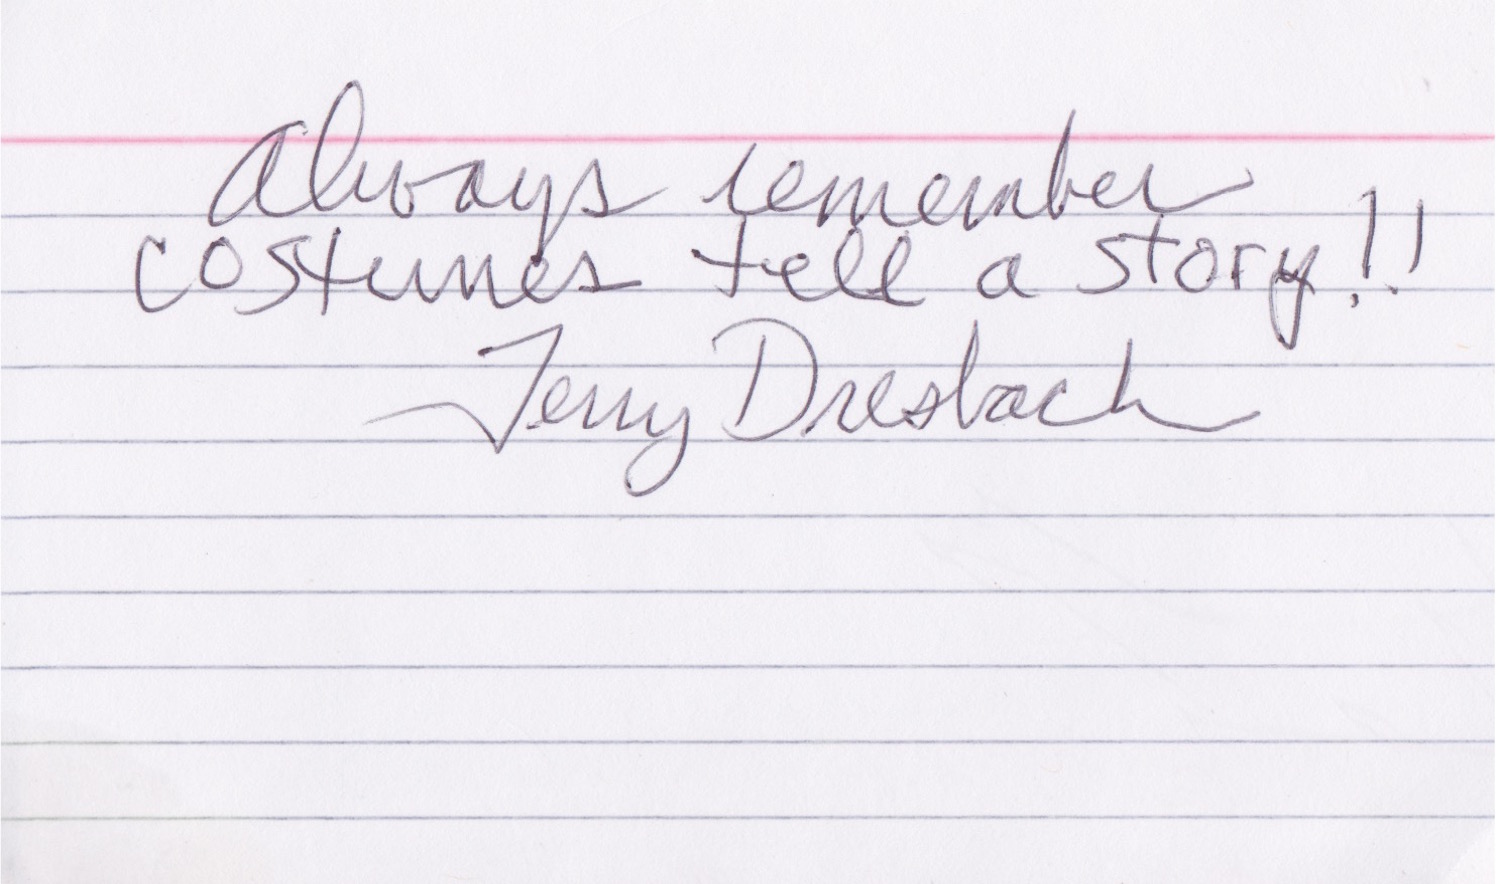 Always remember
costumes tell a story!!
Terry Dresbach